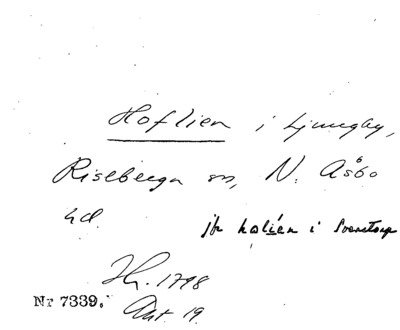 Hoflien i Ljungby,
Riseberga sn, N. Åsbo
hd jfr holién i Svenstorp
Hr. 1798
Nr 7339. Ant. 19.